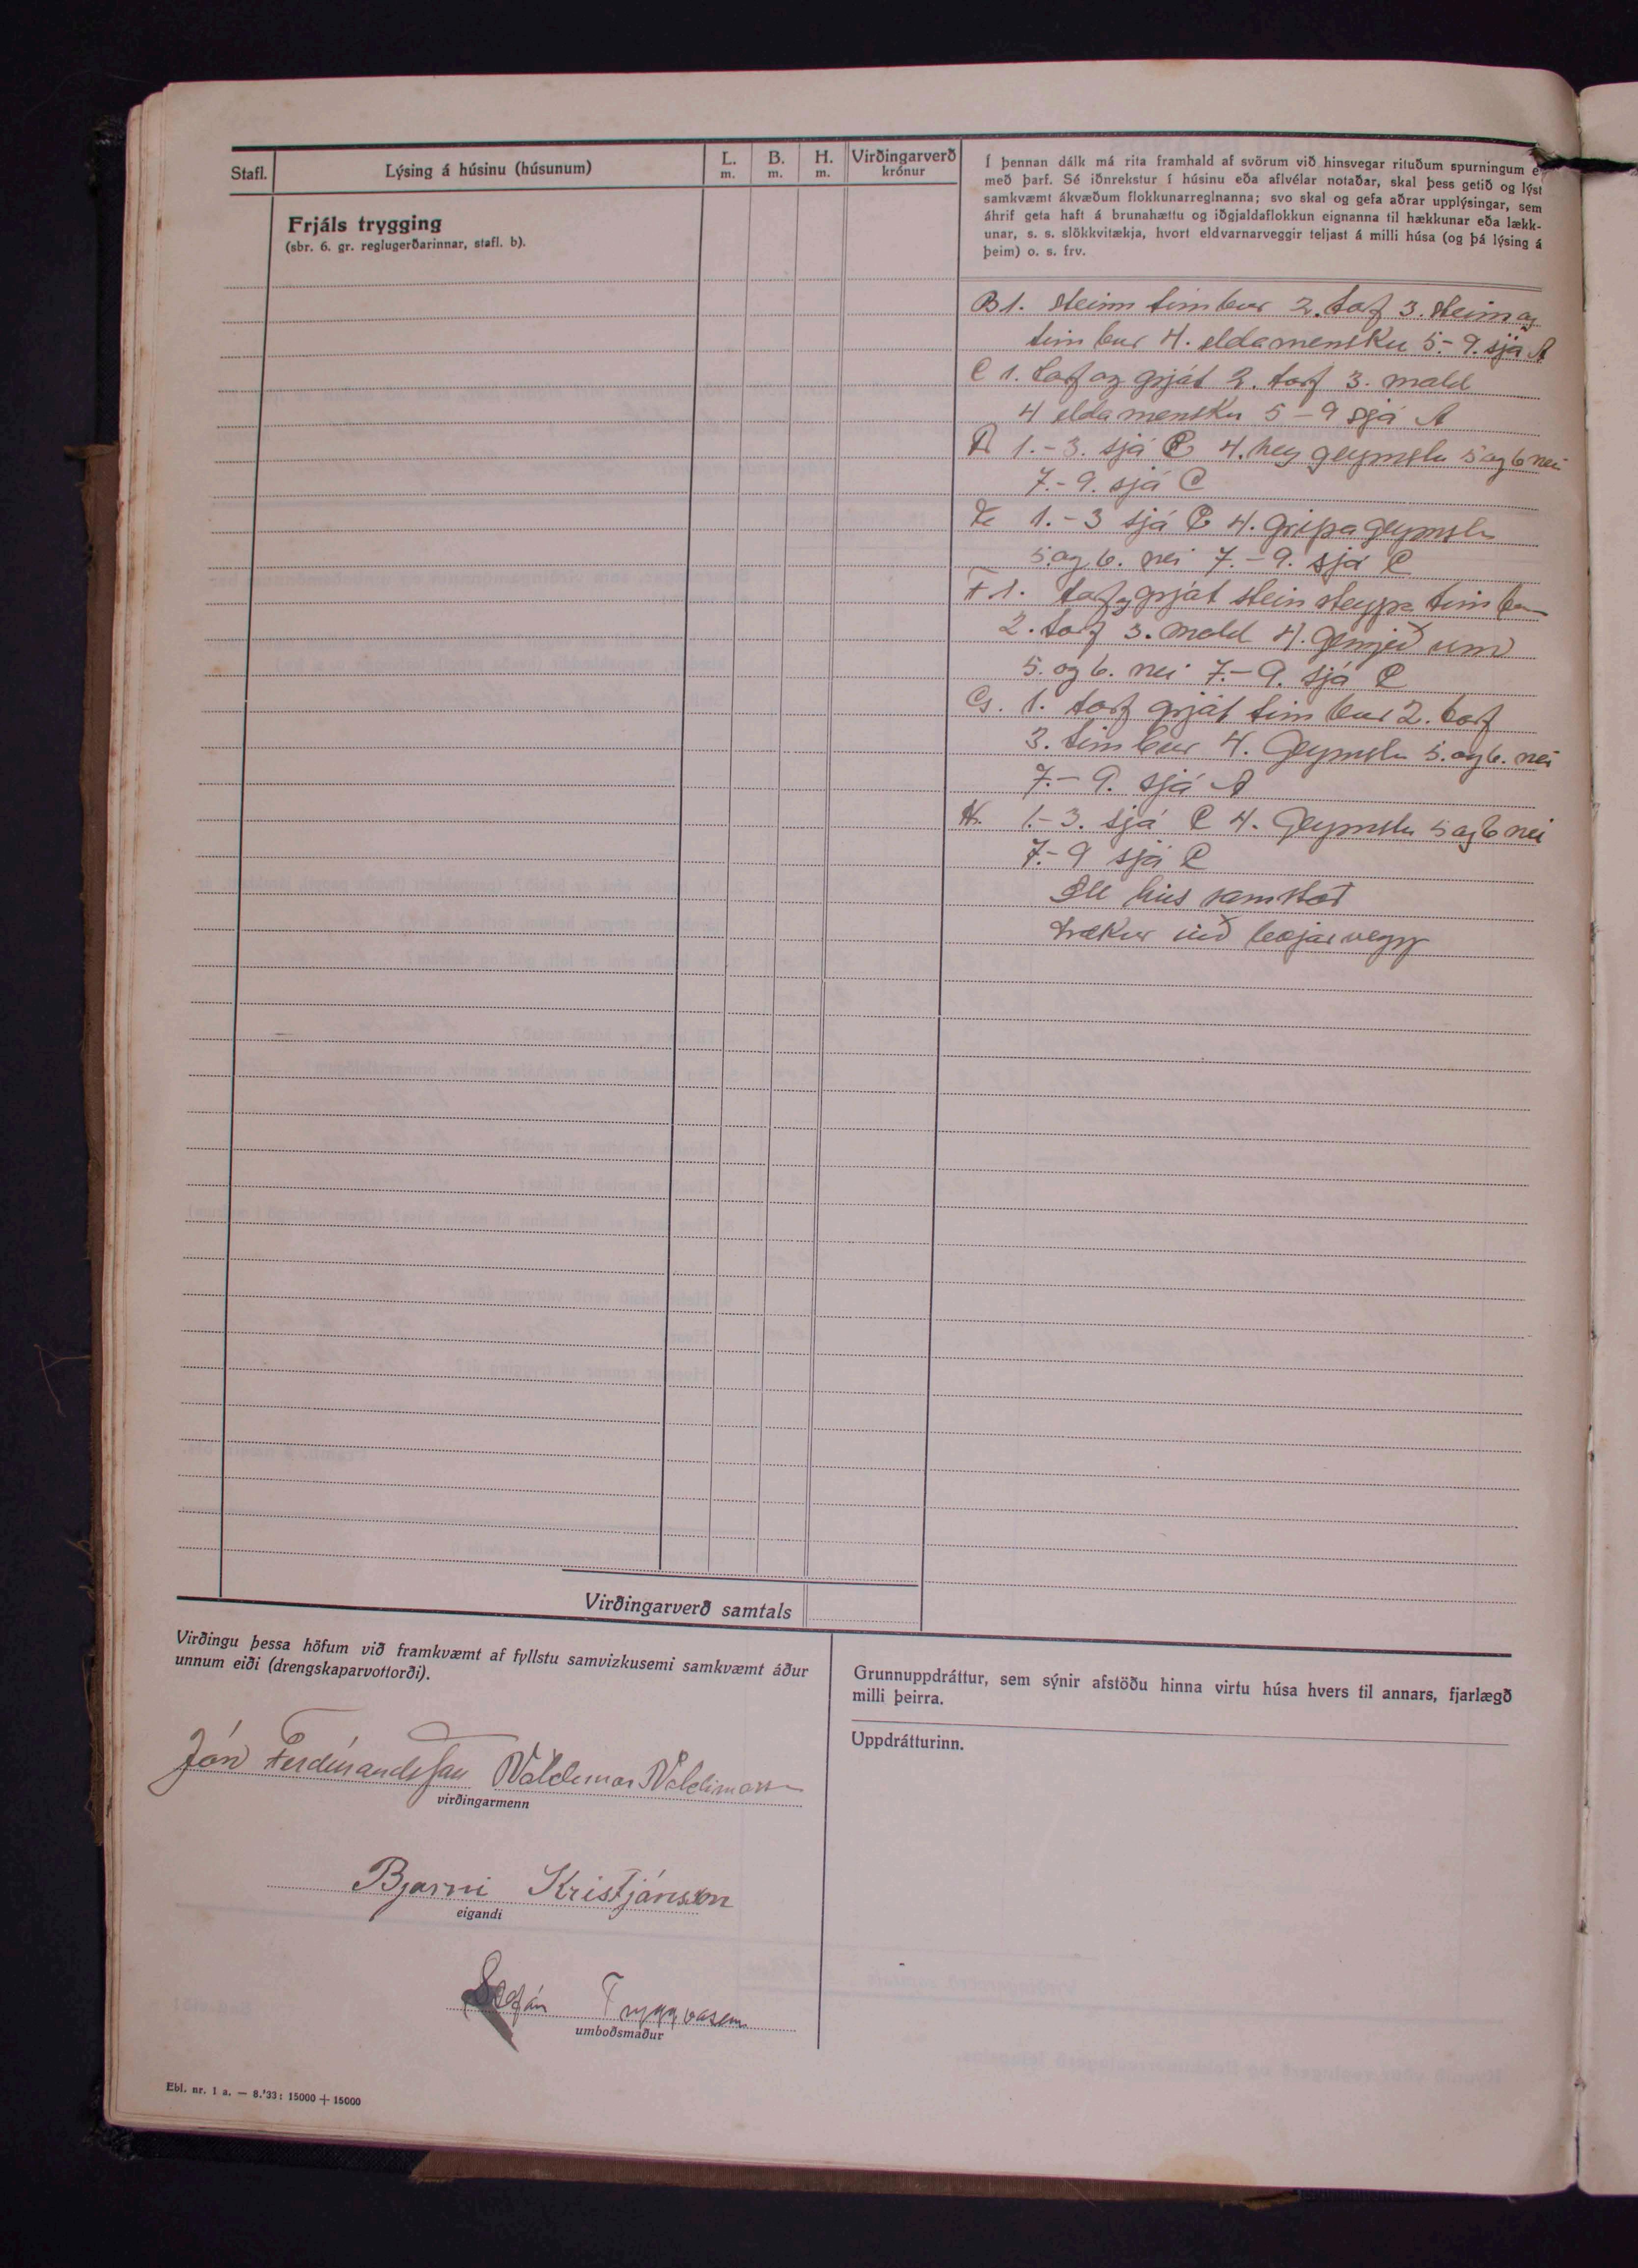 Stafl.
Lýsing á húsinu (húsunum)
L.
m.
B.
m.
H.
m.
Virðingarverð
krónur
Frjáls trygging
(sbr. 6. gr. reglugerðarinnar, stafl. b).
Í þennan dálk má rita framhald af svörum við hinsvegar rituðum spurningum e
með þarf. Sé iðnrekstur í húsinu eða aflvélar notaðar, skal þess getið og lýst
samkvæmt ákvæðum flokkunarreglnanna; svo skal og gefa aðrar upplýsingar, sem
áhrif geta haft á brunahættu og iðgjaldaflokkun eignanna til hækkunar eða lækk-
unar, s. s. slökkvitækja, hvort eldvarnarveggir teljast á milli húsa (og þá lýsing á
þeim) o. s. frv.
B 1. steinn timbur 2. torf 3. steinn og
timbur 4. eldamensku 5.-9. sjá A
C 1. torf og grjót 2. torf 3. mold
4 eldamensku 5-9 sjá A
D 1.-3. sjá C 4. hey geymslu 5 og 6 nei
7.-9. sjá C
E 1.-3 sjá C 4. gripageymslu
5. og 6. nei 7.-9. sjá C
F 1. torf og grjót steinsteypa timbur
2. torf 3. mold 4. um
5. og 6. nei 7.-9. sjá C
G. 1. torf grjót timbur 2. torf
3. timbur 4. Geymslu 5. og 6. nei
7.-9. sjá A
H. 1.-3. sjá C 4. Geymslu 5 og 6 nei
7.-9 sjá C
Öll hús samstæð
við bæjarvegg
Virðingarverð samtals
Virðingu þessa höfum við framkvæmt af fyllstu samvizkusemi samkvæmt áður
unnum eiði (drengskaparvottorði).
Jón Ferdínandsson Valdemar Valdimarsson
virðingarmenn
Bjarni Kristjánsson
eigandi
Stefán Tryggvason
umboðsmaður
Grunnuppdráttur, sem sýnir afstöðu hinna virtu húsa hvers til annars, fjarlægð
milli þeirra.
Uppdrátturinn.
Ebl. nr. 1 a. — 8.'33: 15000 + 15000